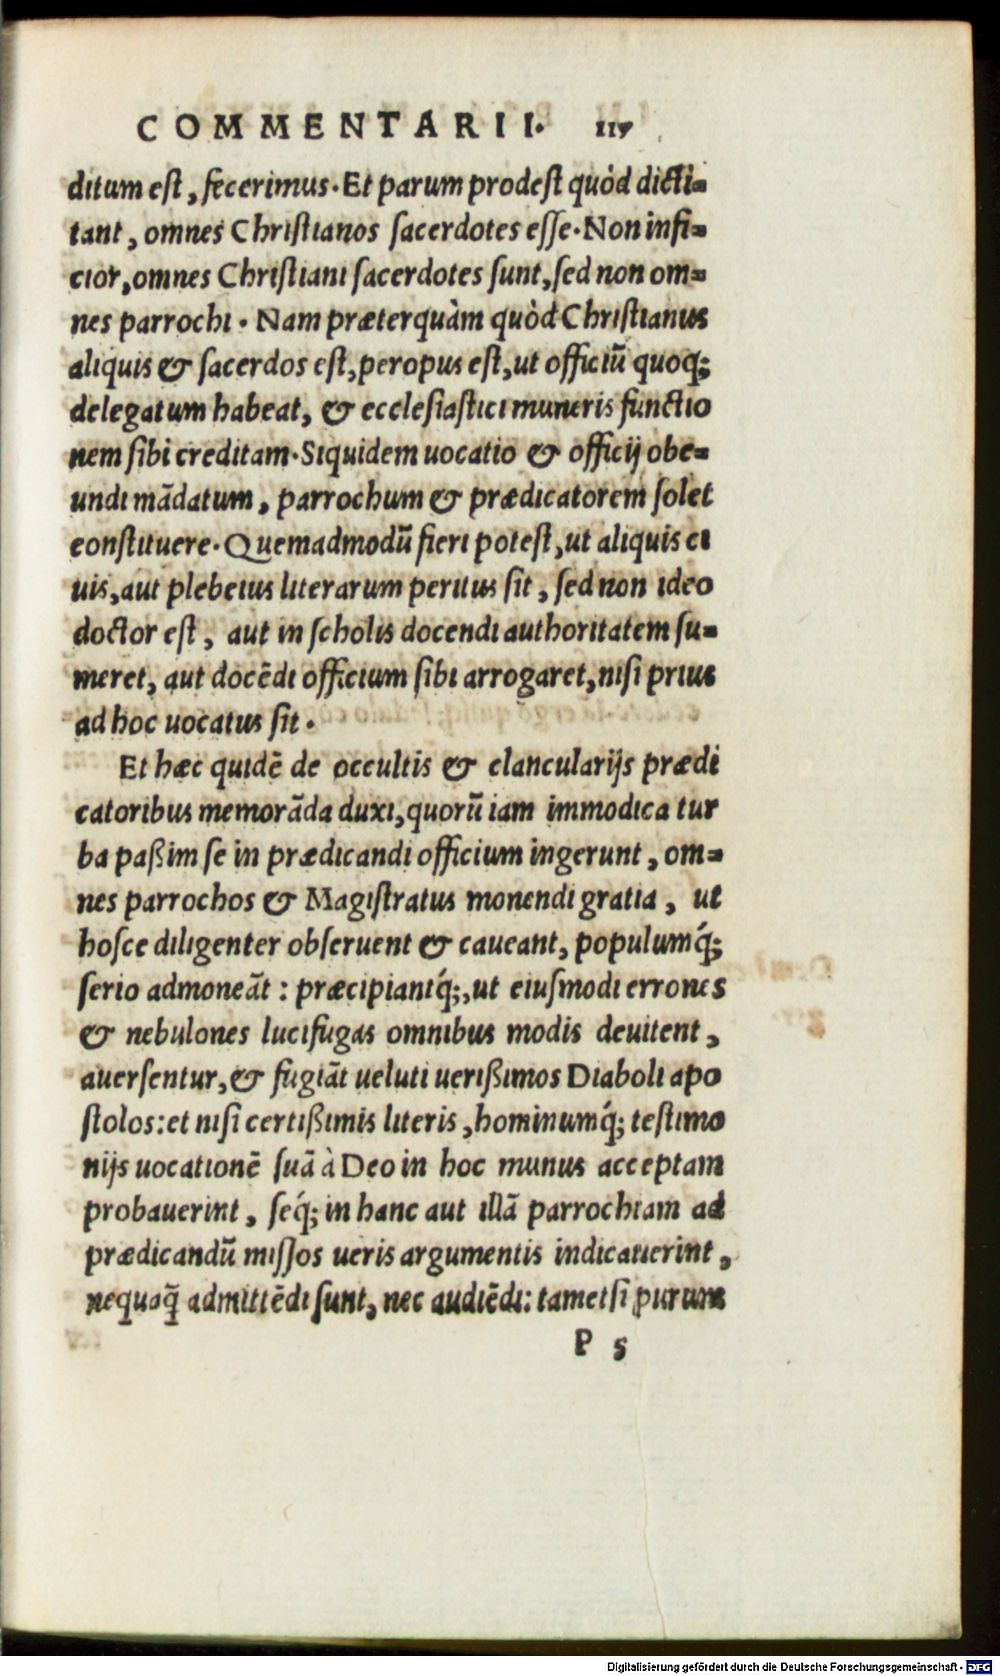 COMMENTARII. 117
ditum est, fecerimus. Et parum prodest quòd dicti=
tant, omnes Christianos sacerdotes esse. Non infi=
cior, omnes Christiani sacerdotes sunt, sed non om=
nes parrochi. Nam præterquàm quòd Christianus
aliquis & sacerdos est, peropus est, ut officiũ quoq;
delegatum habeat, & ecclesiastici muneris functio
nem sibi creditam. Siquidem uocatio & officij obe=
undi mãdatum, parrochum & prædicatorem solet
constituere. Quemadmodũ fieri potest, ut aliquis ci
uis, aut plebeius literarum peritus sit, sed non ideo
doctor est, aut in scholis docendi authoritatem su=
meret, aut docẽdi officium sibi arrogaret, nisi prius
ad hoc uocatus sit.
Et hæc quidẽ de occultis & clancularijs prædi
catoribus memorãda duxi, quorũ iam immodica tur
ba paßim se in prædicandi officium ingerunt, om=
nes parrochos & Magistratus monendi gratia, ut
hosce diligenter obseruent & caueant, populumq́;
serio admoneãt: præcipiantq́;, ut eiusmodi errones
& nebulones lucifugas omnibus modis deuitent,
auersentur, & fugiãt ueluti uerißimos Diaboli apo
stolos: et nisi certißimis literis, hominumq́; testimo
nijs uocationẽ suã à Deo in hoc munus acceptam
probauerint, seq́; in hanc aut illã parrochiam ad
prædicandũ missos ueris argumentis indicauerint,
nequaq̃ admittẽdi sunt, nec audiẽdi: tametsi purum
P 5
Digitalisierung gefördert durch die Deutsche Forschungsgemeinschaft - DFG